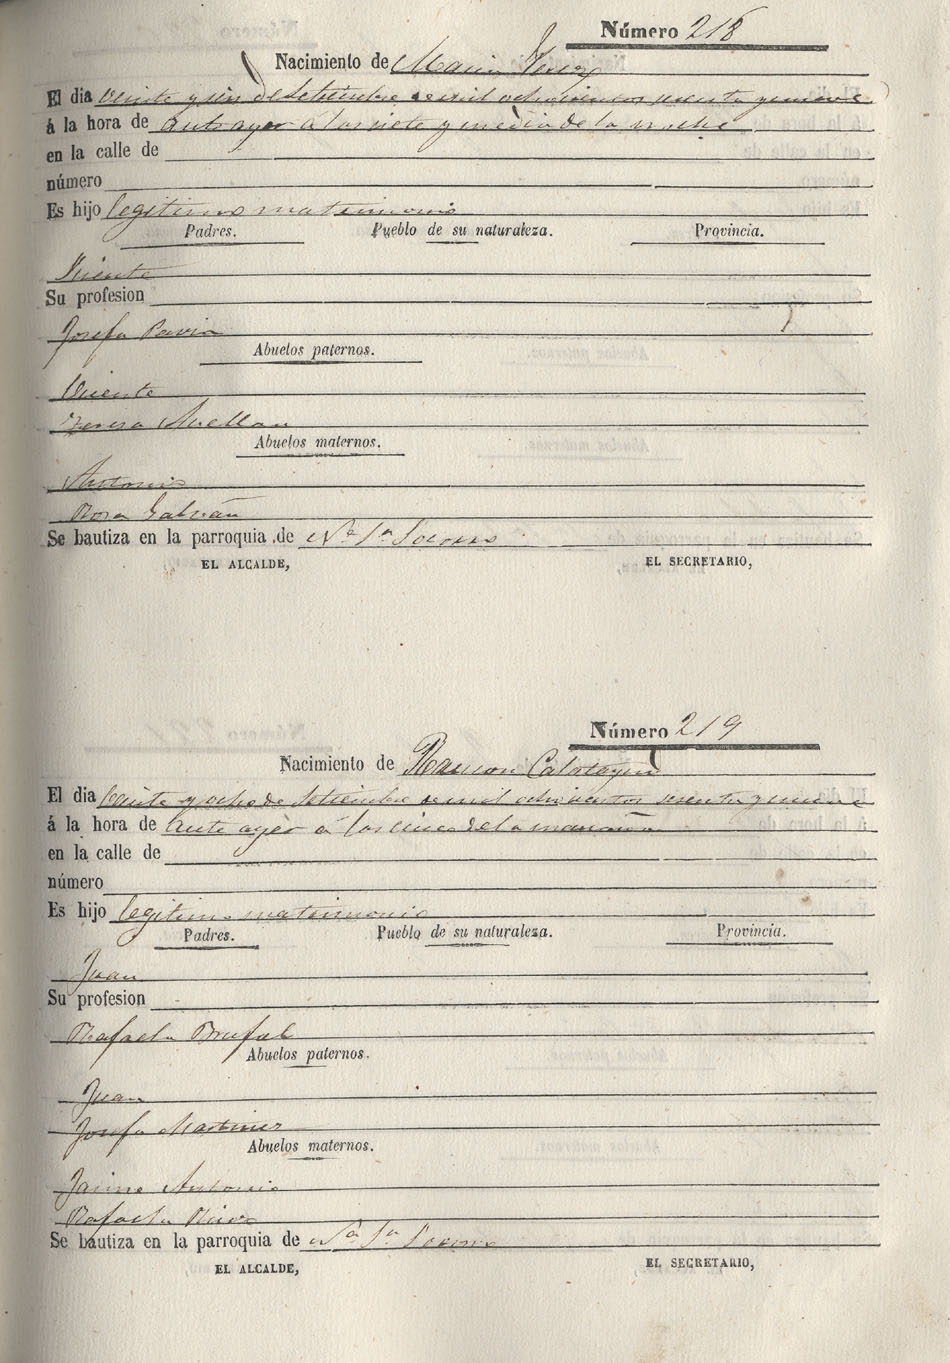 Número 218
Nacimiento de Maria Perez
El dia veinte y seis de Setiembre de mil ochocientos sesenta y nueve
á la hora de ante ayer a las siete y media de la noche
en la calle de
número
Es hijo legitimo matrimonio
Padres. Pueblo de su naturaleza. Provincia.
Vicente
Su profesion
Josefa Pavia
Abuelos paternos.
Vicente
Teresa
Abuelos maternos.
Antonio
Rosa Galvañ
Se bautiza en la parroquia de Nª Sª Socorro
EL ALCALDE, EL SECRETARIO,
Número 219
Nacimiento de Ramon Calatayud
El dia veinte y ocho de Setiembre de mil ochocientos sesenta y nueve
á la hora de ante ayer a las cinco de la mañana
en la calle de
número
Es hijo legitimo matrimonio
Padres. Pueblo de su naturaleza. Provincia.
Juan
Su profesion
Rafaela Brufal
Abuelos paternos.
Juan
Josefa Martinez
Abuelos maternos.
Jaime Antonio
Rafaela
Se bautiza en la parroquia de Nª Sª Socorro
EL ALCALDE, EL SECRETARIO,